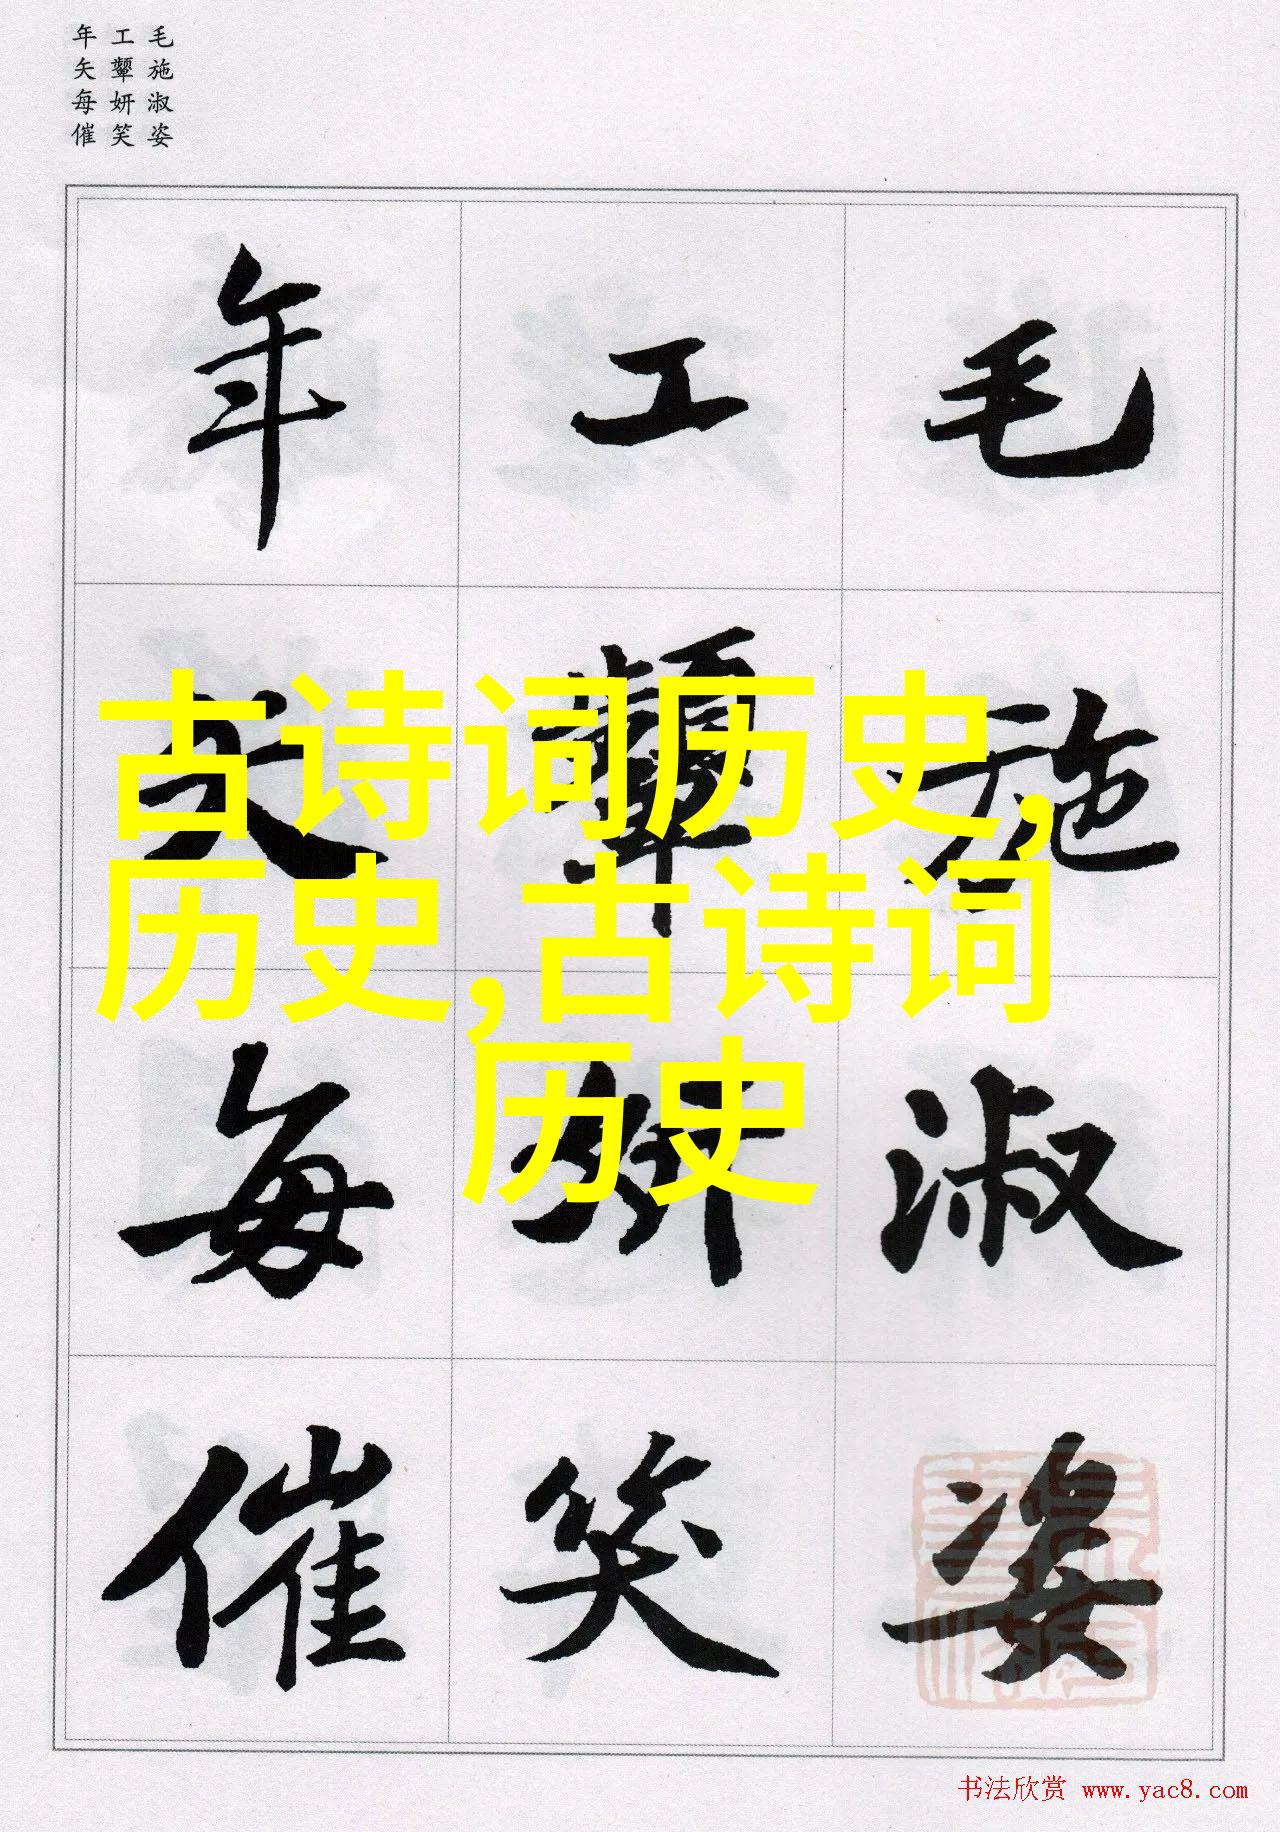 毛施淑姿
工顰妍笑
年矢每催
毛施淑姿
工顰妍笑
年矢每催
古诗词历史,
历史,古诗词
历史
书法欣赏 www.yac8.com